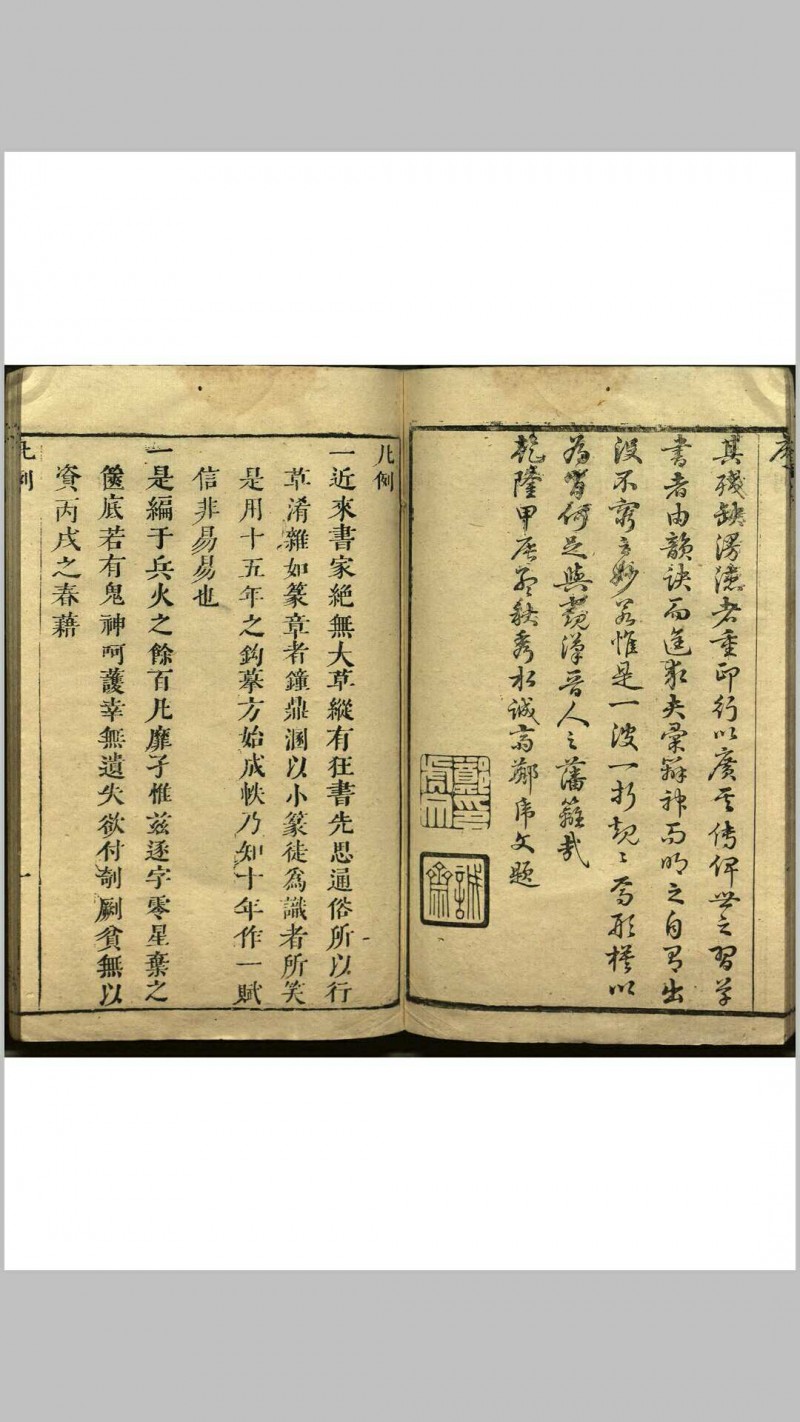 序
其殘缺漫漶者重印行以廣其傳俾世之習學
書者由韻訣而進求夫彙辯神而明之自有出
沒不窮之妙若惟是一波一折規規焉形模以
為肖何足與窺漢晉人之藩籬哉
乾隆甲辰孟秋秀水誠齋鄭
文題
誠齋
凡例
一近來書家絕無大草縱有狂書先思通俗所以行
草淆雜如篆章者鐘鼎溷以小篆徒為識者所笑
是用十五年之鈎摹方始成帙乃知十年作一賦
信非易易也
一是編于兵火之餘百凡靡孑惟茲逐字零星棄之
篋底若有鬼神呵護幸無遺失欲付剞劂貧無以
資丙戌之春藉
凡例
一